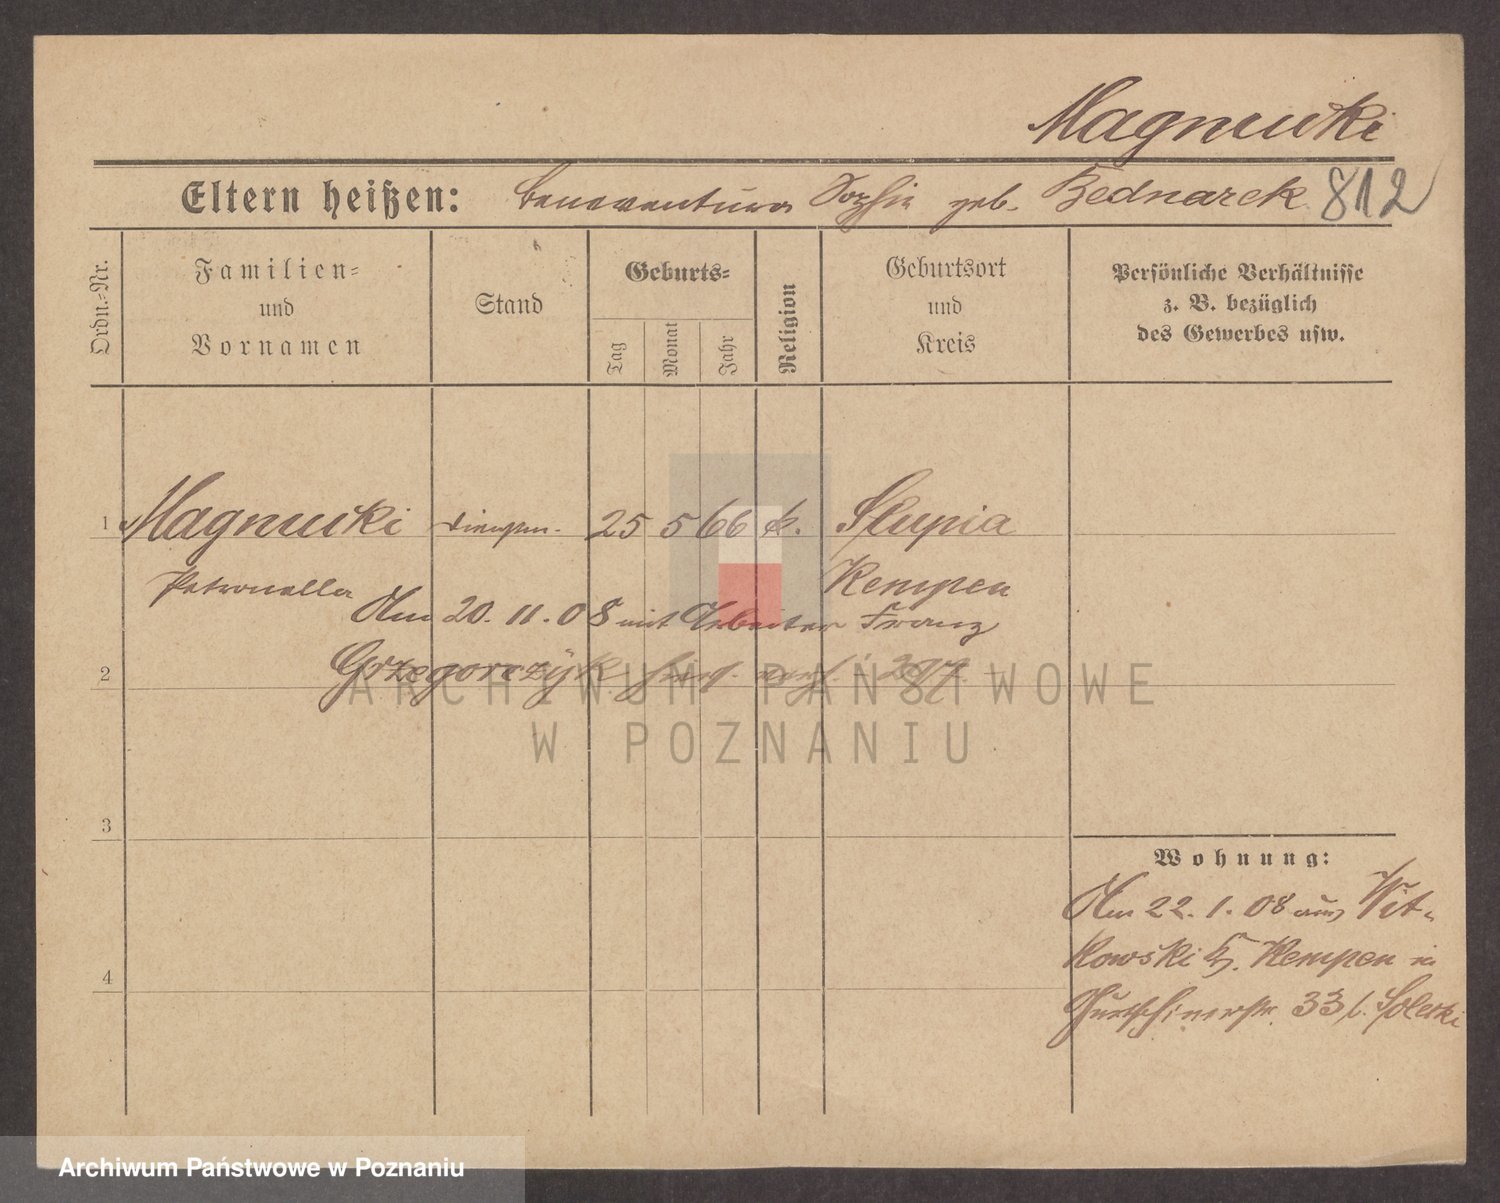 Magnucki
Eltern heißen: Bonaventura Sophie geb. Bednarek 812
Ordn.-Nr.
Familien-
und
Vornamen
Stand
Geburts-
Tag
Monat
Jahr
Religion
Geburtsort
und
Kreis
Persönliche Verhältnisse
z. B. bezüglich
des Gewerbes usw.
1 Magnucki 25 5 66 k. Slupia
Petronella Kempen
Am 20. 11. 08 mit Arbeiter Franz
2 Grzegorczyk 297
ARCHIWUM PAŃSTWOWE
W POZNANIU
3
Wohnung:
Am 22. 1. 08 aus Wit-
kowski K. Kempen in
4
Gurtschinerstr. 33 b. Solecki
Archiwum Państwowe w Poznaniu